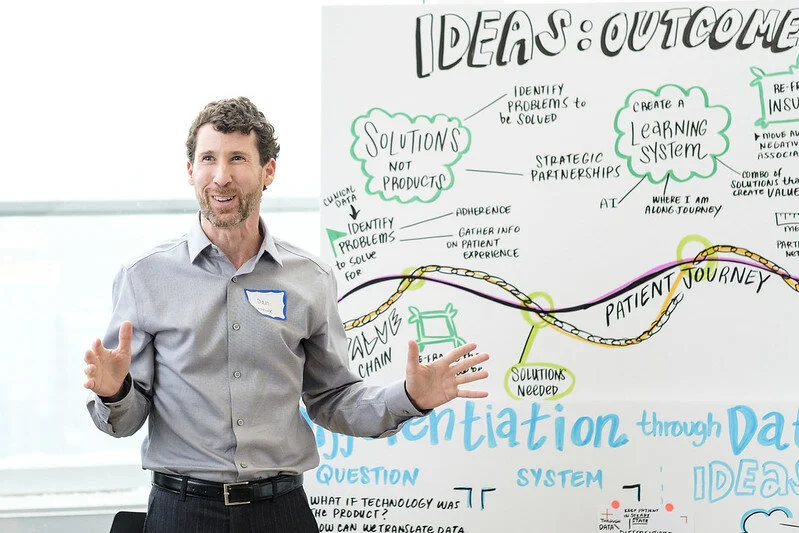 IDEAS: OUTCOME
IDENTIFY
PROBLEMS to
be SOLVED
SOLUTIONS
NOT
PRODUCTS
STRATEGIC
PARTNERSHIPS
CREATE A
LEARNING
SYSTEM
AI
WHERE I AM
ALONG JOURNEY
RE-FR
INSU
MOVE AW
NEGATIV
ASSOCIA
COMBO OF
SOLUTIONS tha
CREATE VALUE
CLINICAL
DATA
IDENTIFY
PROBLEMS
to SOLVE
FOR
ADHERENCE
GATHER INFO
ON PATIENT
EXPERIENCE
ME
PARTI
NET
PATIENT JOURNEY
VALUE
CHAIN
SOLUTIONS
NEEDED
Dan
entiation through Dat
QUESTION
SYSTEM
IDEAS
WHAT IF TECHNOLOGY WAS
THE PRODUCT?
HOW CAN WE TRANSLATE DATA
THROUGH
DATA
KEEP PATIENT
IN STEADY
STATE